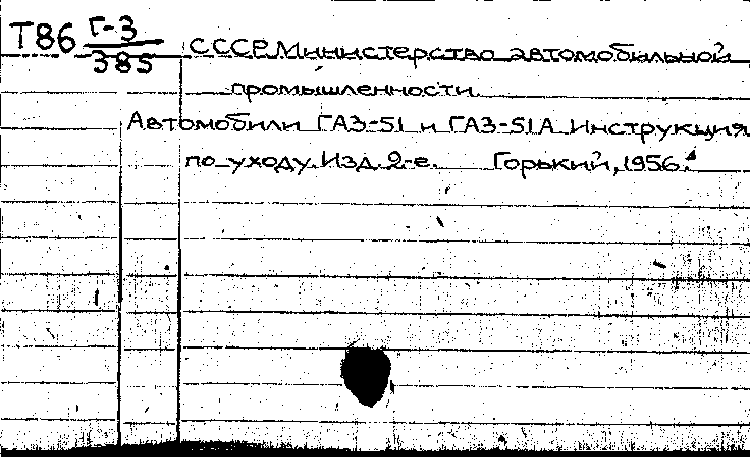 Т86 Г-3/385
СССР. Министерство автомобильной
промышленности.
Автомобили ГАЗ-51 и ГАЗ-51А Инструкция
по уходу. Изд. 2-е. Горький, 1956.